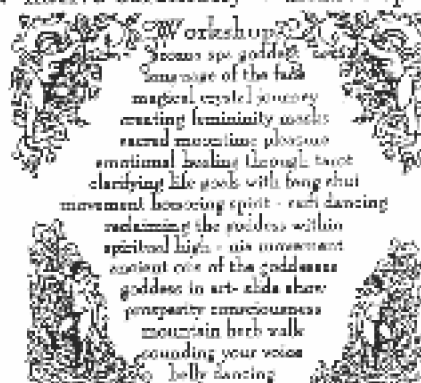 Workshops
goddess
language of the
magical crystal journey
creating femininity masks
sacred moontime pleasure
emotional healing through tarot
clarifying life goals with feng shui
movement honoring spirit - sufi dancing
reclaiming the goddess within
spiritual high - nia movement
ancient of the goddesses
goddess in art- slide show
prosperity consciousness
mountain herb walk
sounding your voice
belly dancing